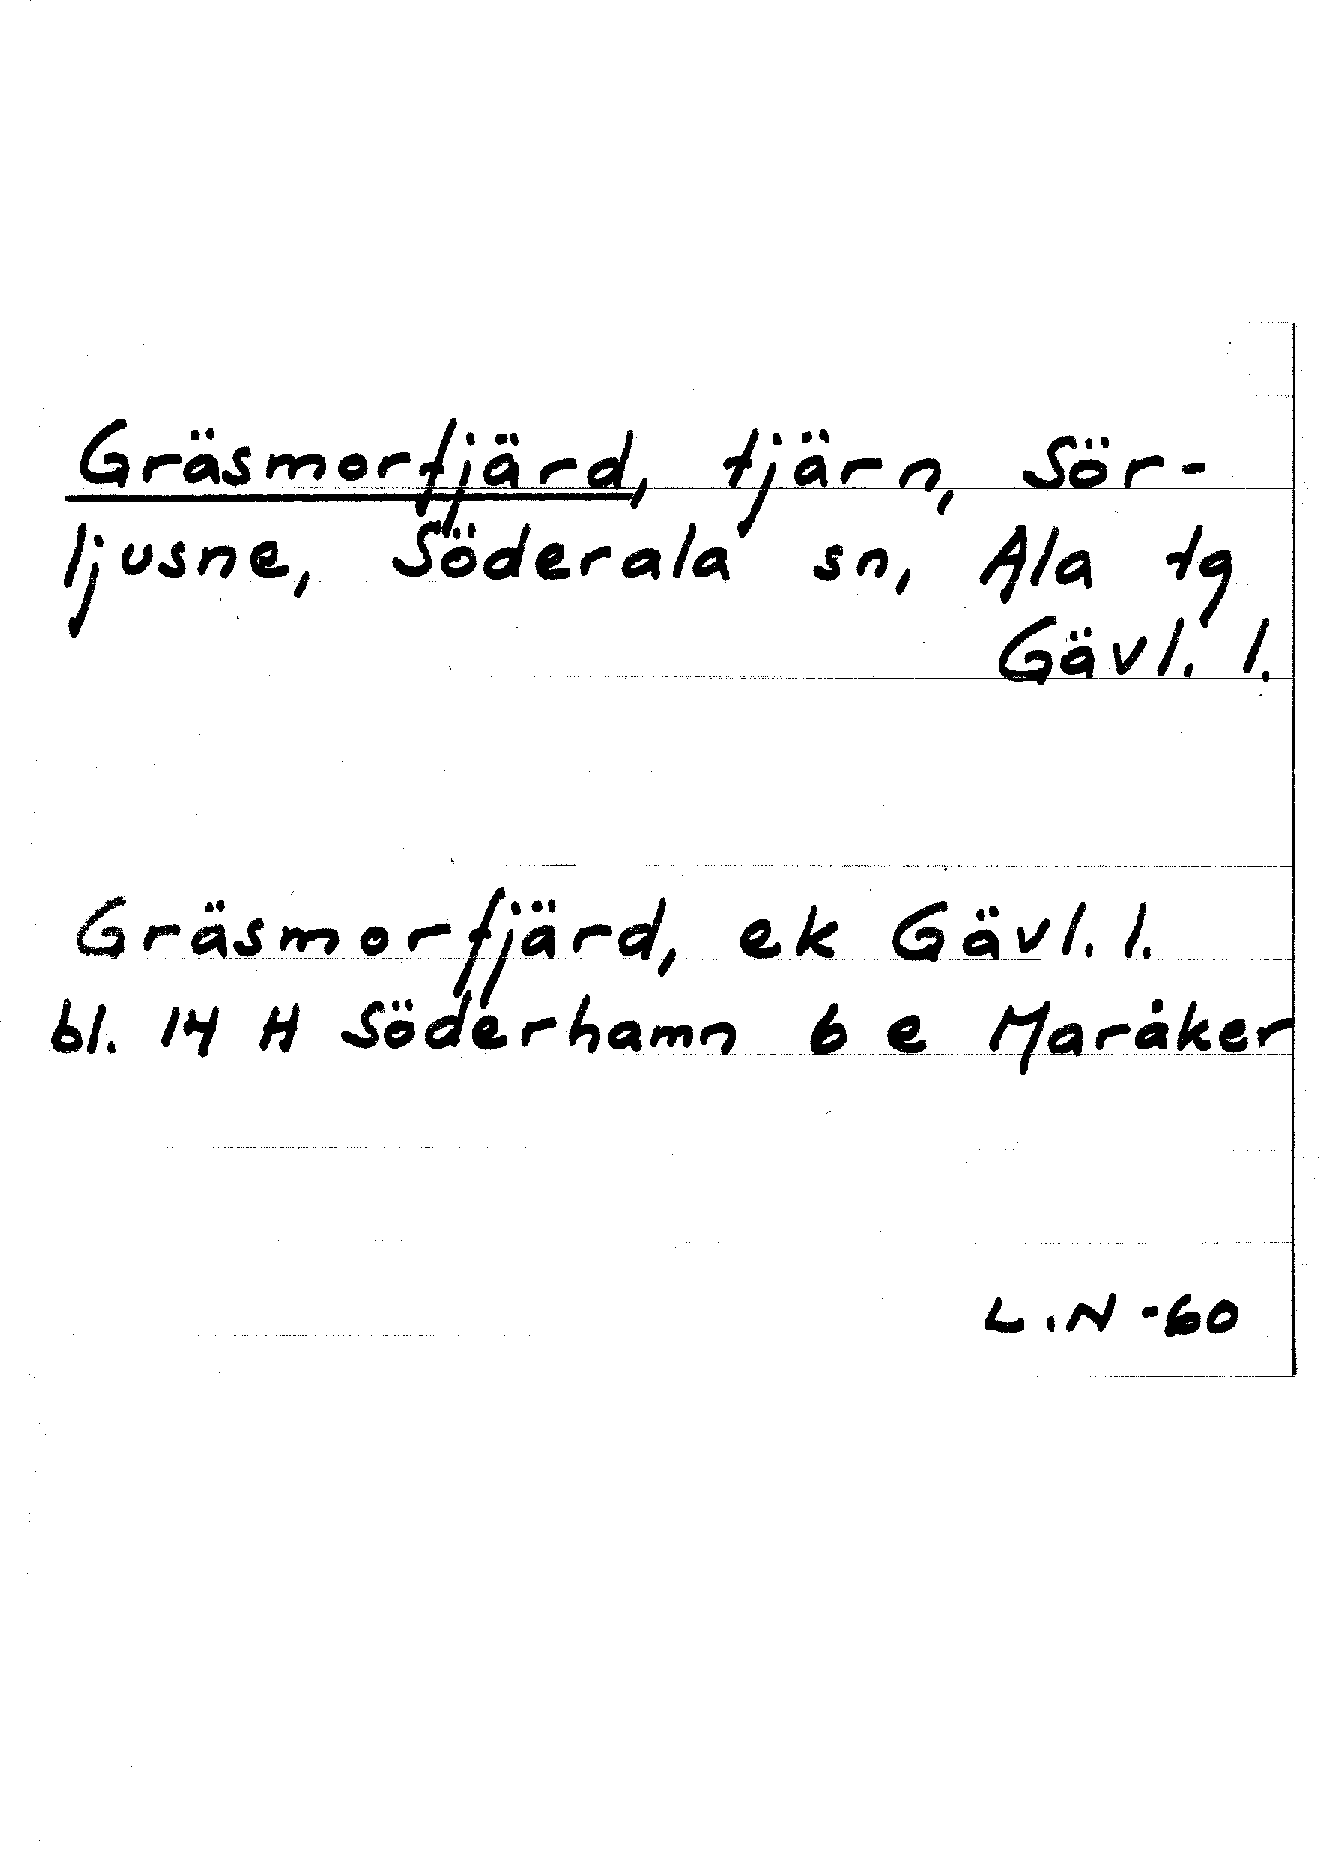 Gräsmorfjärd, tjärn, Sör-
ljusne, Söderala sn, Ala tg
Gävl. l.
Gräsmorfjärd, ek Gävl. l.
bl. 14 H Söderhamn 6 e Maråker
L.N -60